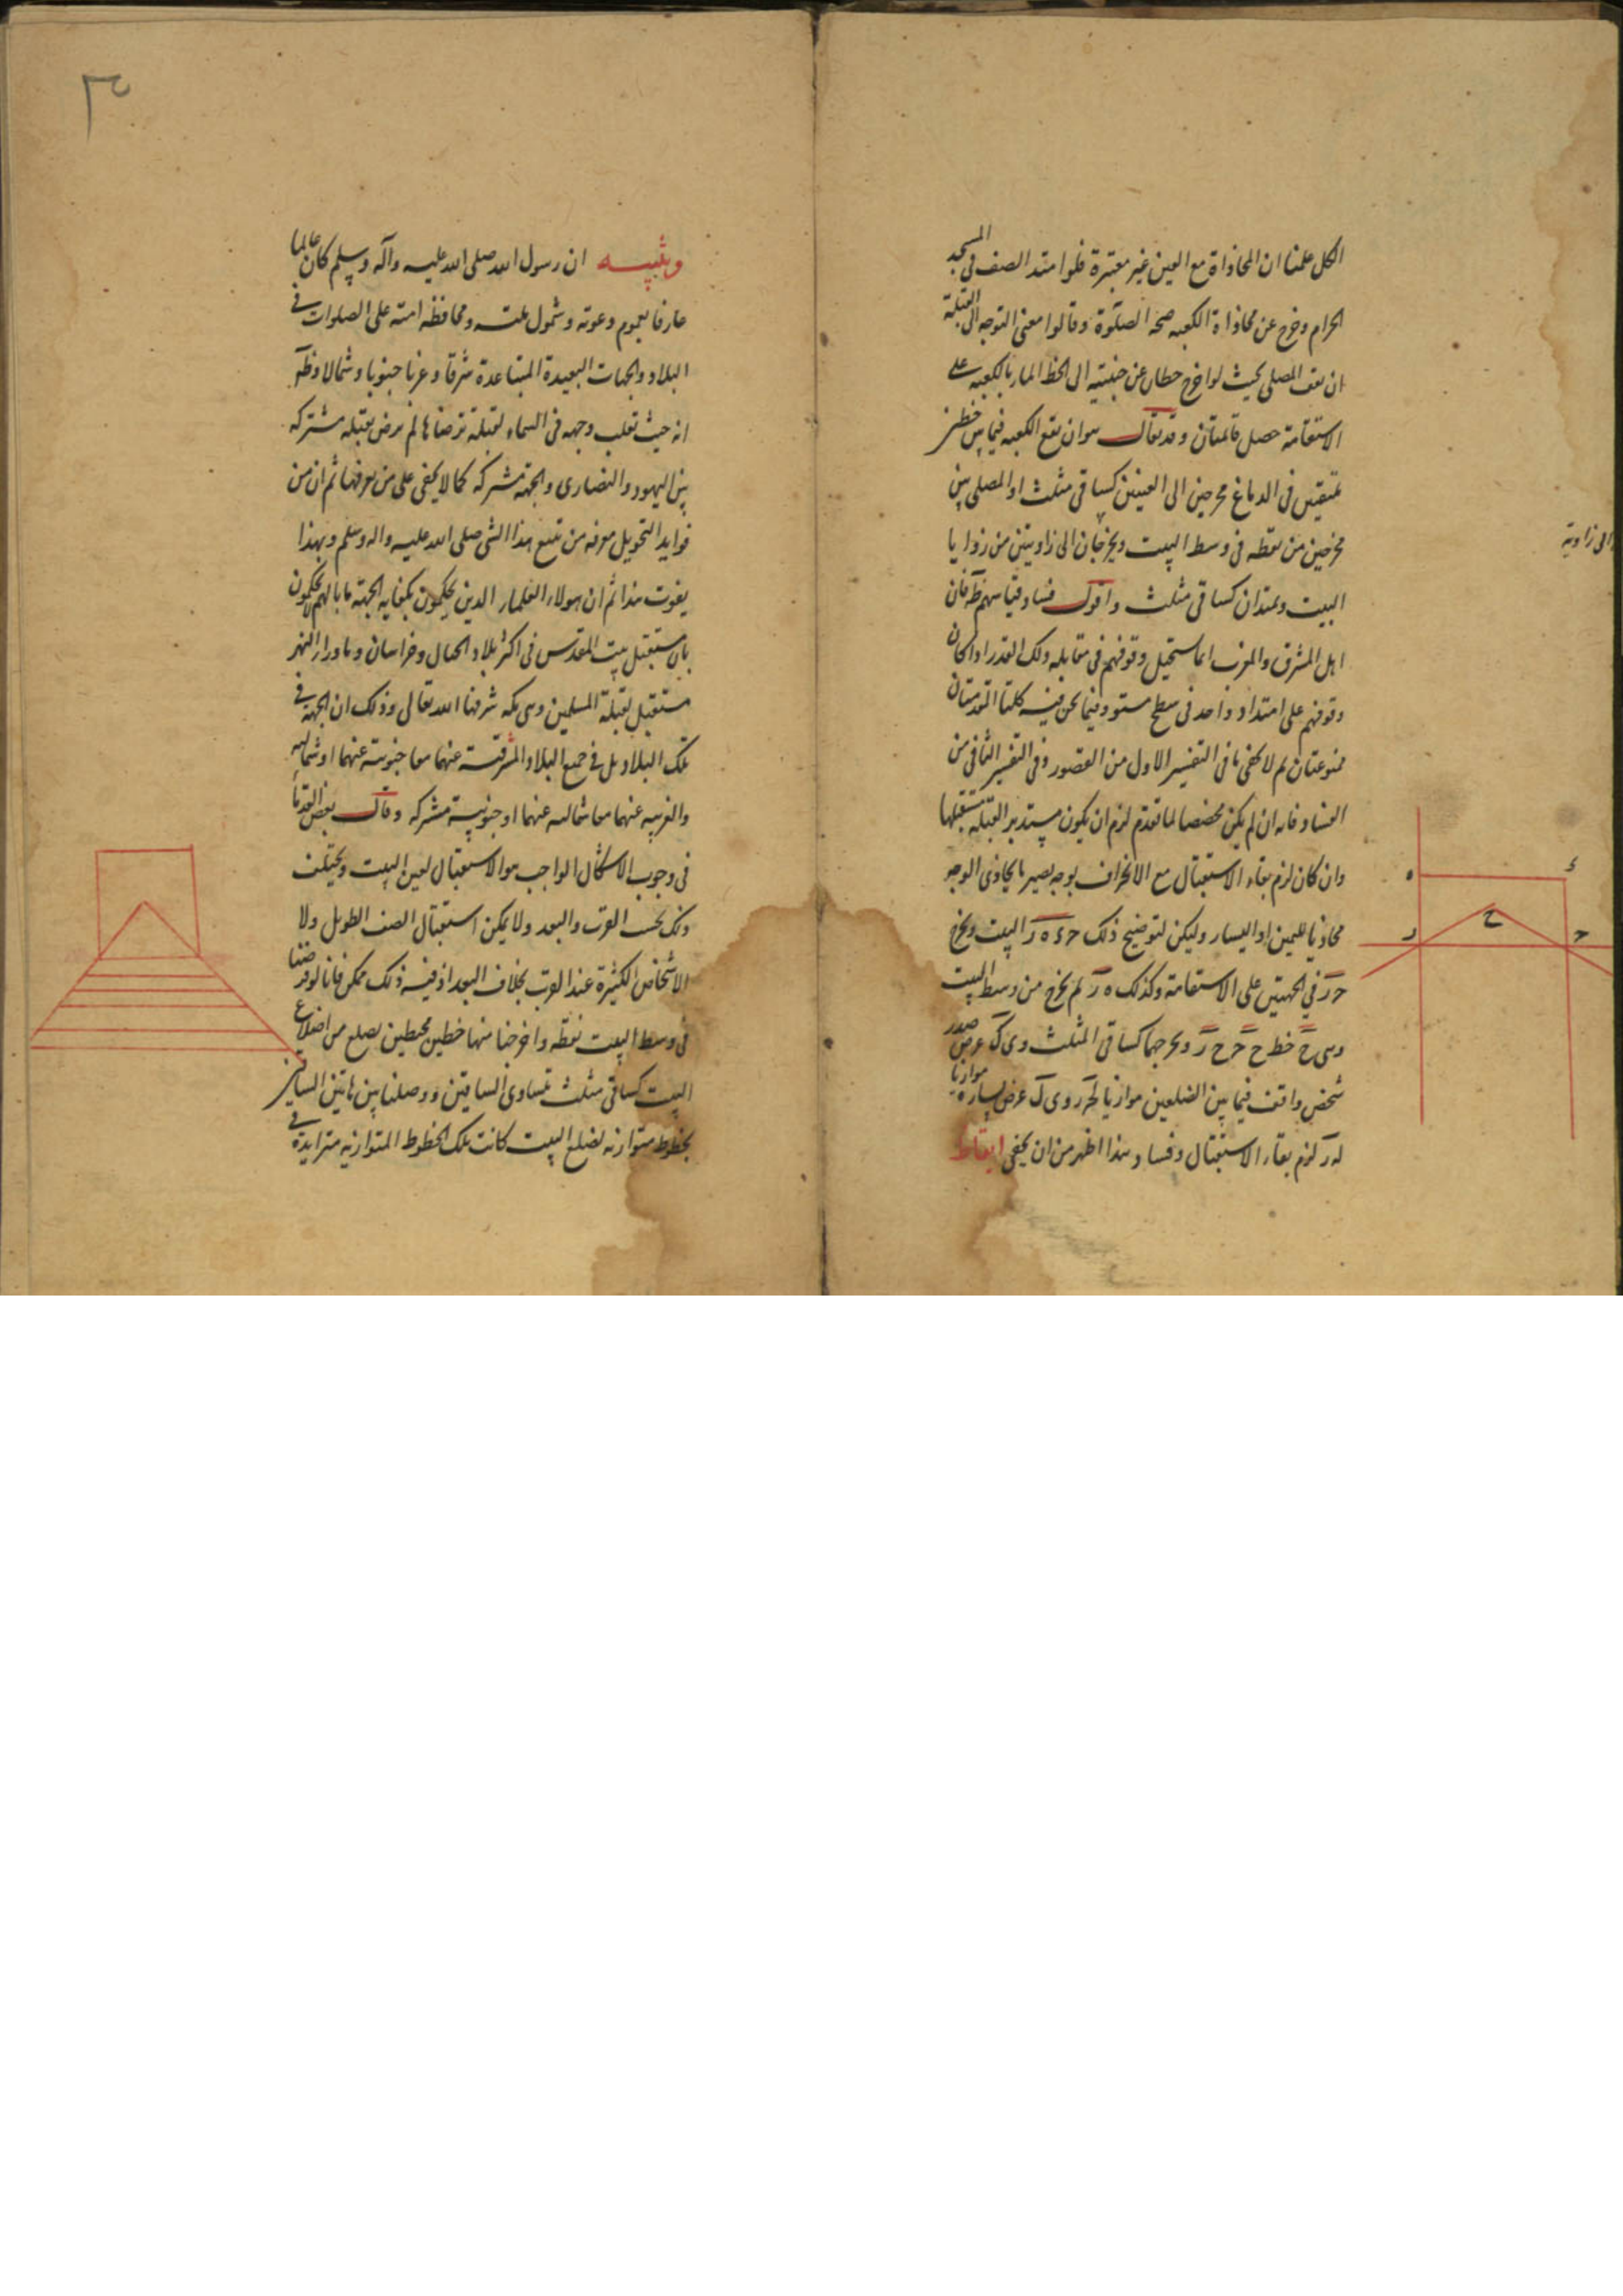 الكل علمنا ان المحاذاة مع العين غير معتبرة فلو امتد الصف فى المسجد
الحرام وخرج عن محاذاة الكعبه صحه الصلوة وقالوا معنى التوجه الى القبلة
ان يقف المصلى بحيث لو اخرج خطان عن جنبتيه الى الخط المار بالكعبه على
الاستقامة حصل قائمتان وقد يقال هو ان يقع الكعبه فيما بين خطين
يلتقين فى الدماغ مخرجين الى العينين كساقى مثلث او المصلى بين
مخرجين من نقطه فى وسط البيت ويخرجان الى زاويتين من زوايا
الى زاوية
البيت ويمتدان كساقى مثلث واقول فساد قياسهم ظ فان
اهل المشرق والمغرب انما يستحيل وقوفهم فى مقابله ذلك القدر اذا كان
وقوفهم على امتداد واحد فى سطح مستو وفيما نحن فيه كلتا المقدمتان
ممنوعتان ثم لا يخفى ما فى التفسير الاول من القصور وفى التفسير الثانى من
الفساد فانه ان لم يكن مخصصا لما تقدم لزم ان يكون مستدبر القبلة مستقبلها
وان كان لزم بقاء الاستقبال مع الانحراف بوجه يصير ما يحاذى الوجه
محاذيا لليمين او اليسار وليكن لتوضيح ذلك ح ء ه ر البيت ويخرج
ح ر فى الجهتين على الاستقامة وكذلك ه ر ثم يخرج من وسط البيت
وهى ح خط ح ح ح ر ويخرجهما كساقى المثلث وى ك عرض صدر
شخص واقف فيما بين الضلعين موازيا وى ك عرض يساره موازيا
لزم بقاء الاستقبال وفساد هذا اظهر من ان يخفى ايقاظ
ء
ه
ح
ح
ر
٣
وتنبيه ان رسول الله صلى الله عليه وآله وسلم كان عالما
عارفا بعموم دعوته وشمول ملته ومحافظه امته على الصلوات فى
البلاد والجهات البعيدة المتباعدة شرقا وغربا جنوبا وشمالا وظ
انه حيث تقلب وجهه فى السماء لقبلة ترضاها لم يرض بقبله مشتركه
بين اليهود والنصارى والجهة مشتركه كما لا يخفى على من يعرفها ثم ان من
فوايد التحويل معرفه من يتبع هذا النبى صلى الله عليه واله وسلم وبهذا
يفوت هذا ثم ان هولاء العلماء الذين يحكمون بكفايه الجهة ما بالهم لا يحكمون
بان مستقبل بيت المقدس فى اكثر بلاد الجبال وخراسان وماوراء النهر
مستقبل لقبلة المسلمين وهى مكه شرفها الله تعالى وذلك ان الجهة فى
تلك البلاد بل فى جميع البلاد المشرقية عنهما معا جنوبية عنهما او شماليه
والغربيه عنهما معا شماليه عنهما او جنوبية مشتركه وقال بعض القدما
فى وجوب الاشكال الواجب هو الاستقبال لعين البيت ويختلف
ذلك بحسب القرب والبعد ولا يمكن استقبال الصف الطويل ولا
الاشخاص الكثيرة عند القرب بخلاف البعد اذ فيه ذلك ممكن فانا لو فرضنا
فى وسط البيت نقطه واخرجنا منها خطين محيطين بضلع من اضلاع
البيت كساقى مثلث متساوى الساقين ووصلنا بين هاتين الساقين
بخطوط متوازيه لضلع البيت كانت تلك الخطوط المتوازيه متزايدة فى